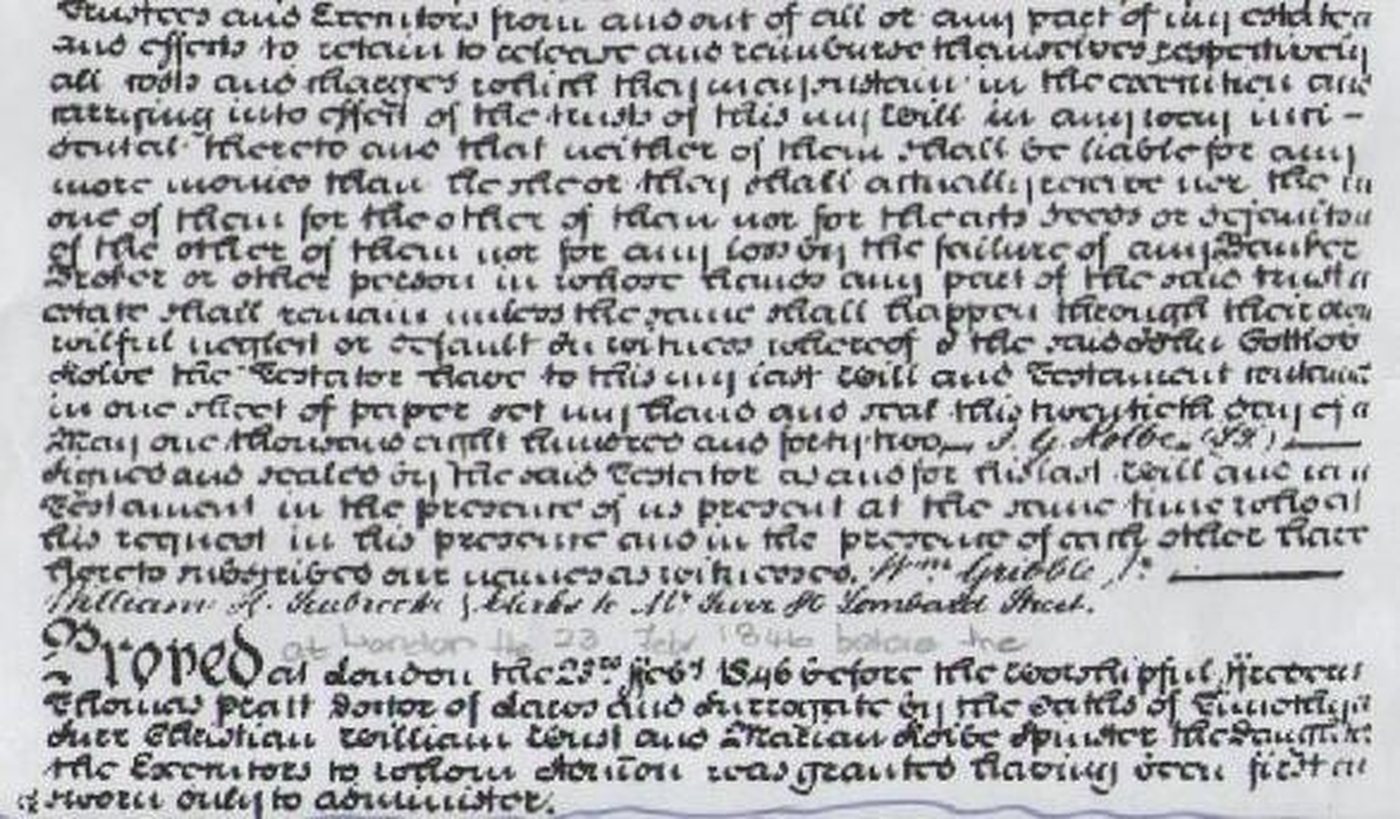 Trustees and Executors from and out of all or any part of my estate
and effects to retain to release and reimburse themselves respectively
all costs and charges which they may sustain in the execution and
carrying into effect of the trusts of this my Will in any way inci-
dental thereto and that neither of them shall be liable for any
more monies than he she or they shall actually receive nor the
one of them for the other of them nor for the acts deeds or
of the other of them nor for any loss by the failure of any Banker
Broker or other person in whose hands any part of the said trust
estate shall remain unless the same shall happen through their own
wilful neglect or default In witness whereof I the said John Gottlob
Kolbe the Testator have to this my last Will and Testament
in one sheet of paper set my hand and seal this twentieth day of
May one thousand eight hundred and forty two J. G. Kolbe
Signed and sealed by the said Testator as and for his last Will and
Testament in the presence of us present at the same time who at
his request in his presence and in the presence of each other have
hereto subscribed our names as witnesses. Wm Gribble Jr
William H. Clerks to Mr Lombard Street.
at London the 23 Feby 1846 before the
Proved at London the 23rd Feby 1846 before the Worshipful Frederic
Thomas Pratt Doctor of Laws and Surrogate by the Oaths of Timothy
Burr Christian William Wüst and Marian Kolbe Spinster the Daughter
the Executors to whom Admon was granted having been first
sworn duly to administer.